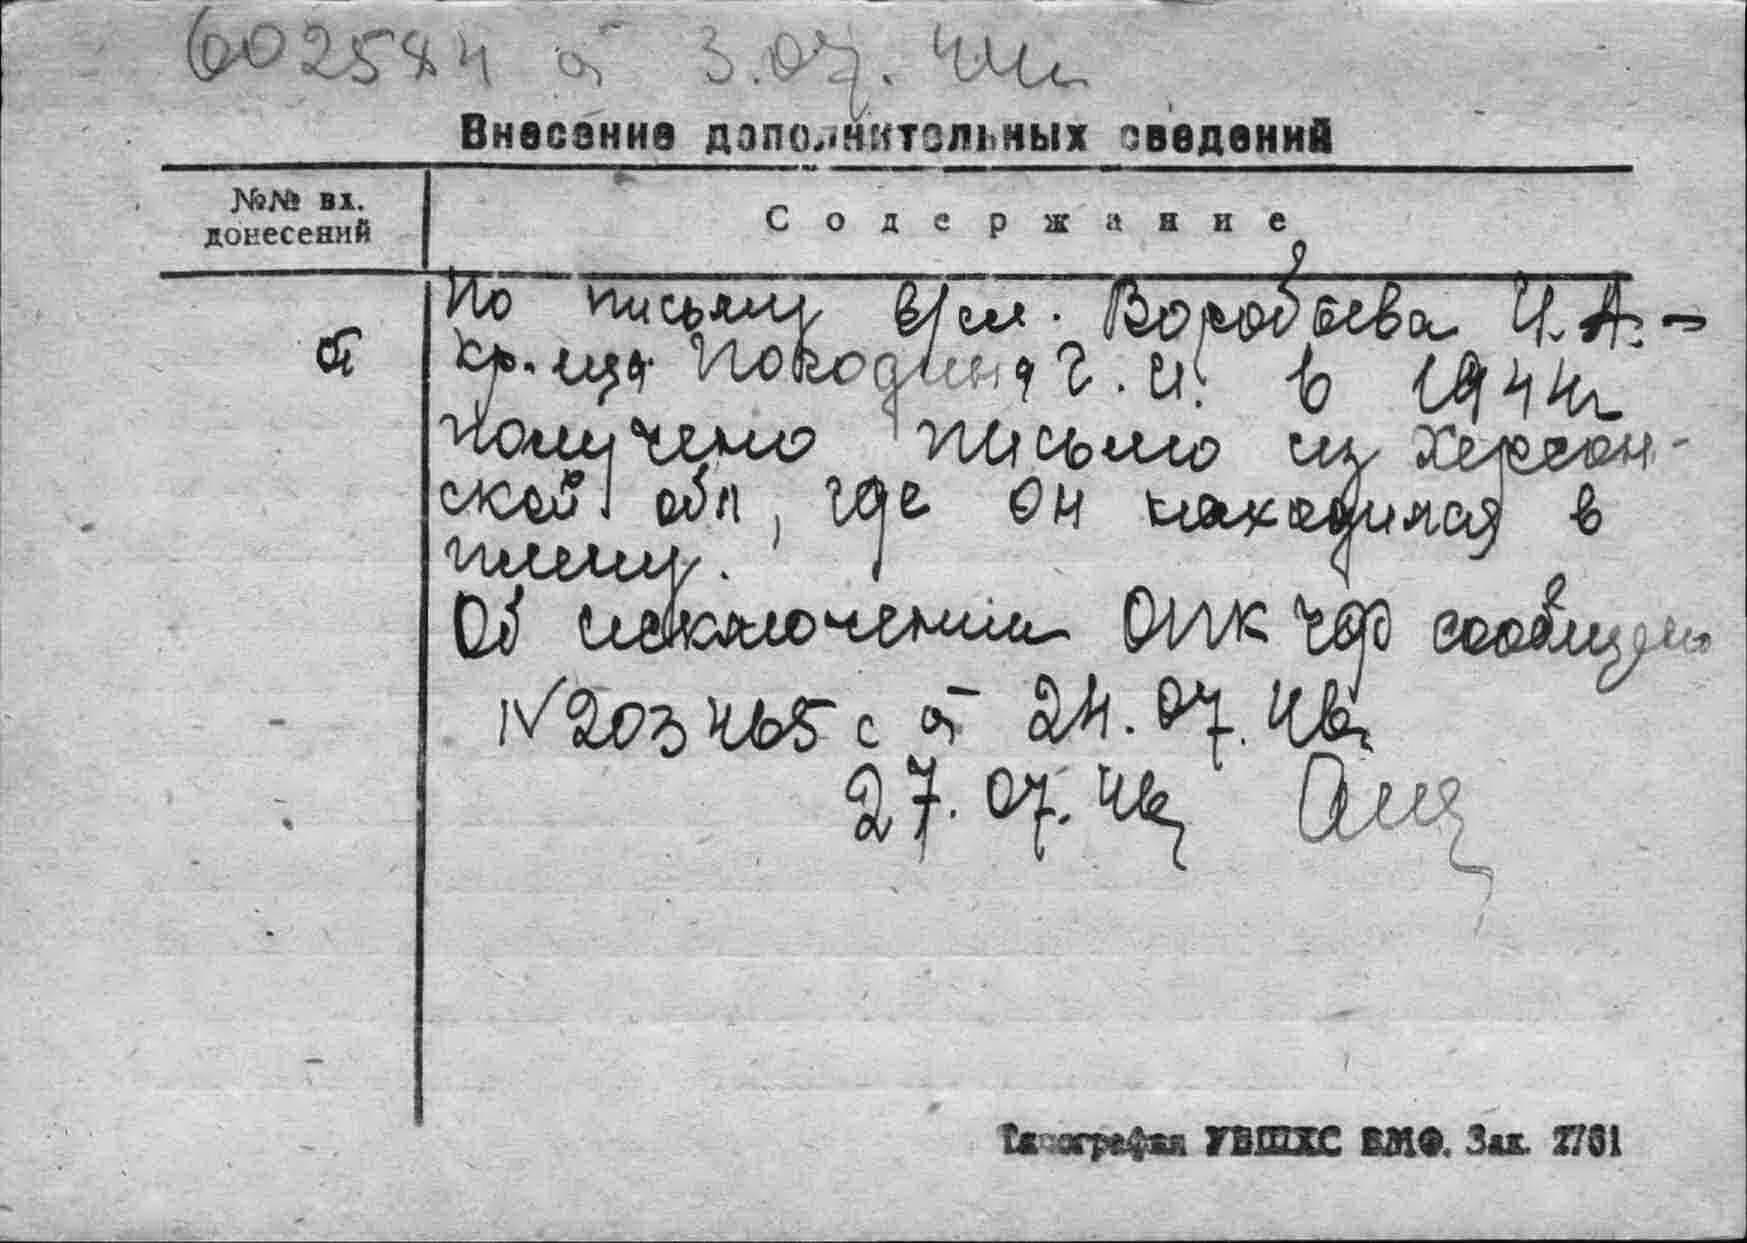 602584 от 3.07.44г
Внесение дополнительных сведений
№№ вх. донесений
Содержание
По письму в/сл. Воробьева И.А. -
от
кр-ца Покодина Г.И. в 1944г
получено письмо из Херсон-
ской обл, где он находился в
плену.
Об исключении ОПК ЧФ сообщено
N 203465 с от 24.07.46г
27.07.46г
Типография УВШХС ВМФ. Зак. 2761